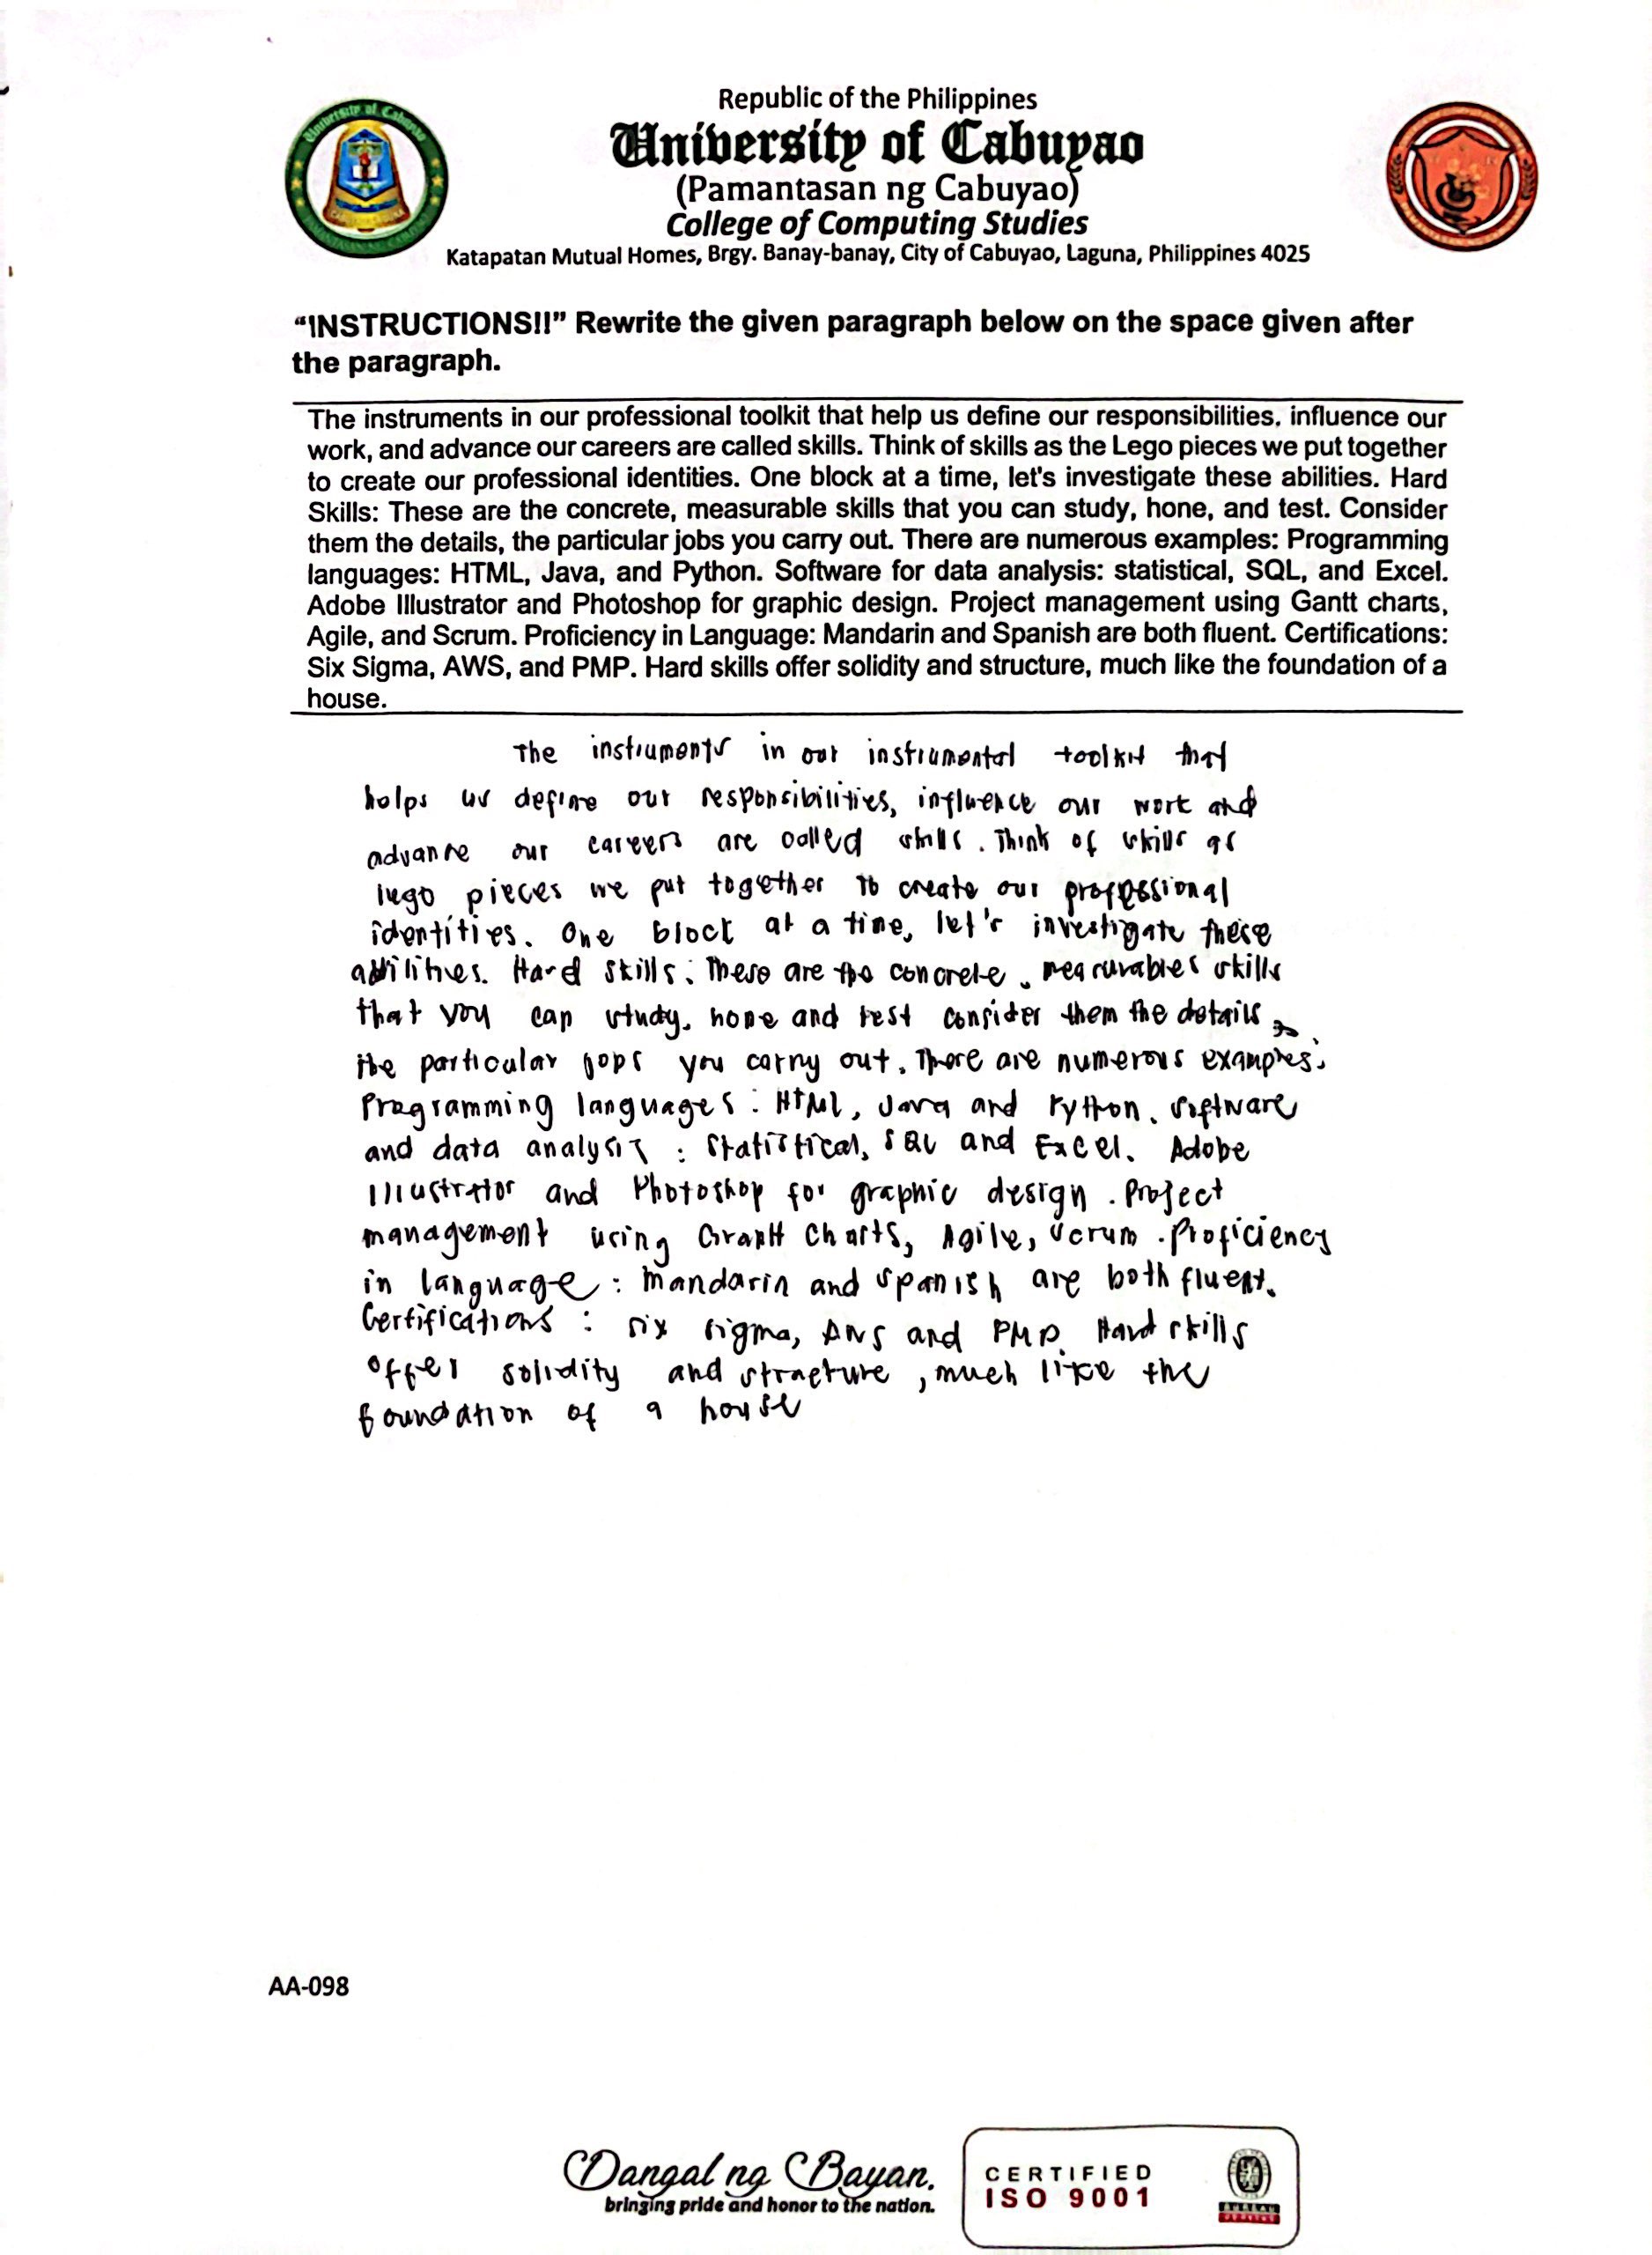 Republic of the Philippines
University of Cabuyao
(Pamantasan ng Cabuyao)
College of Computing Studies
Katapatan Mutual Homes, Brgy. Banay-banay, City of Cabuyao, Laguna, Philippines 4025
“INSTRUCTIONS!!” Rewrite the given paragraph below on the space given after
the paragraph.
The instruments in our professional toolkit that help us define our responsibilities, influence our
work, and advance our careers are called skills. Think of skills as the Lego pieces we put together
to create our professional identities. One block at a time, let's investigate these abilities. Hard
Skills: These are the concrete, measurable skills that you can study, hone, and test. Consider
them the details, the particular jobs you carry out. There are numerous examples: Programming
languages: HTML, Java, and Python. Software for data analysis: statistical, SQL, and Excel.
Adobe Illustrator and Photoshop for graphic design. Project management using Gantt charts,
Agile, and Scrum. Proficiency in Language: Mandarin and Spanish are both fluent. Certifications:
Six Sigma, AWS, and PMP. Hard skills offer solidity and structure, much like the foundation of a
house.
The instruments in our instrumental toolkit that
helps us define our responsibilities, influence our work and
advance our careers are called skills. Think of skills as
lego pieces we put together to create our professional
identities. One block at a time, let's investigate these
abilities. Hard Skills: These are the concrete, measurables skills
that you can study, hone and test consider them the details,
the particular you carry out. There are numerous examples:
Programming languages: HTML, Java and Python. Software
and data analysis: Statistical, SQL and Excel. Adobe
Illustrator and Photoshop for graphic design. Project
management using Grantt Charts, Agile, Scrum. Proficiency
in language: Mandarin and Spanish are both fluent.
Certifications: Six Sigma, AWS and PMP. Hard skills
offer solidity and structure, much like the
foundation of a house
AA-098
Dangal ng Bayan.
bringing pride and honor to the nation.
CERTIFIED
ISO 9001
BUREAU
VERITAS